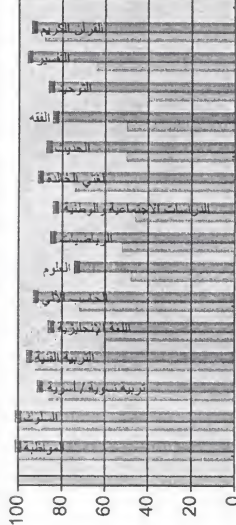 القرآن الكريم
التفسير
التوحيد
الفقه
الحديث
لغتي الخالدة
الدراسات الاجتماعية والوطنية
الرياضيات
العلوم
الحاسب الآلي
اللغة الإنجليزية
التربية الفنية
تربية نسوية / أسرية
السلوك
المواظبة
100
80
60
40
20
0